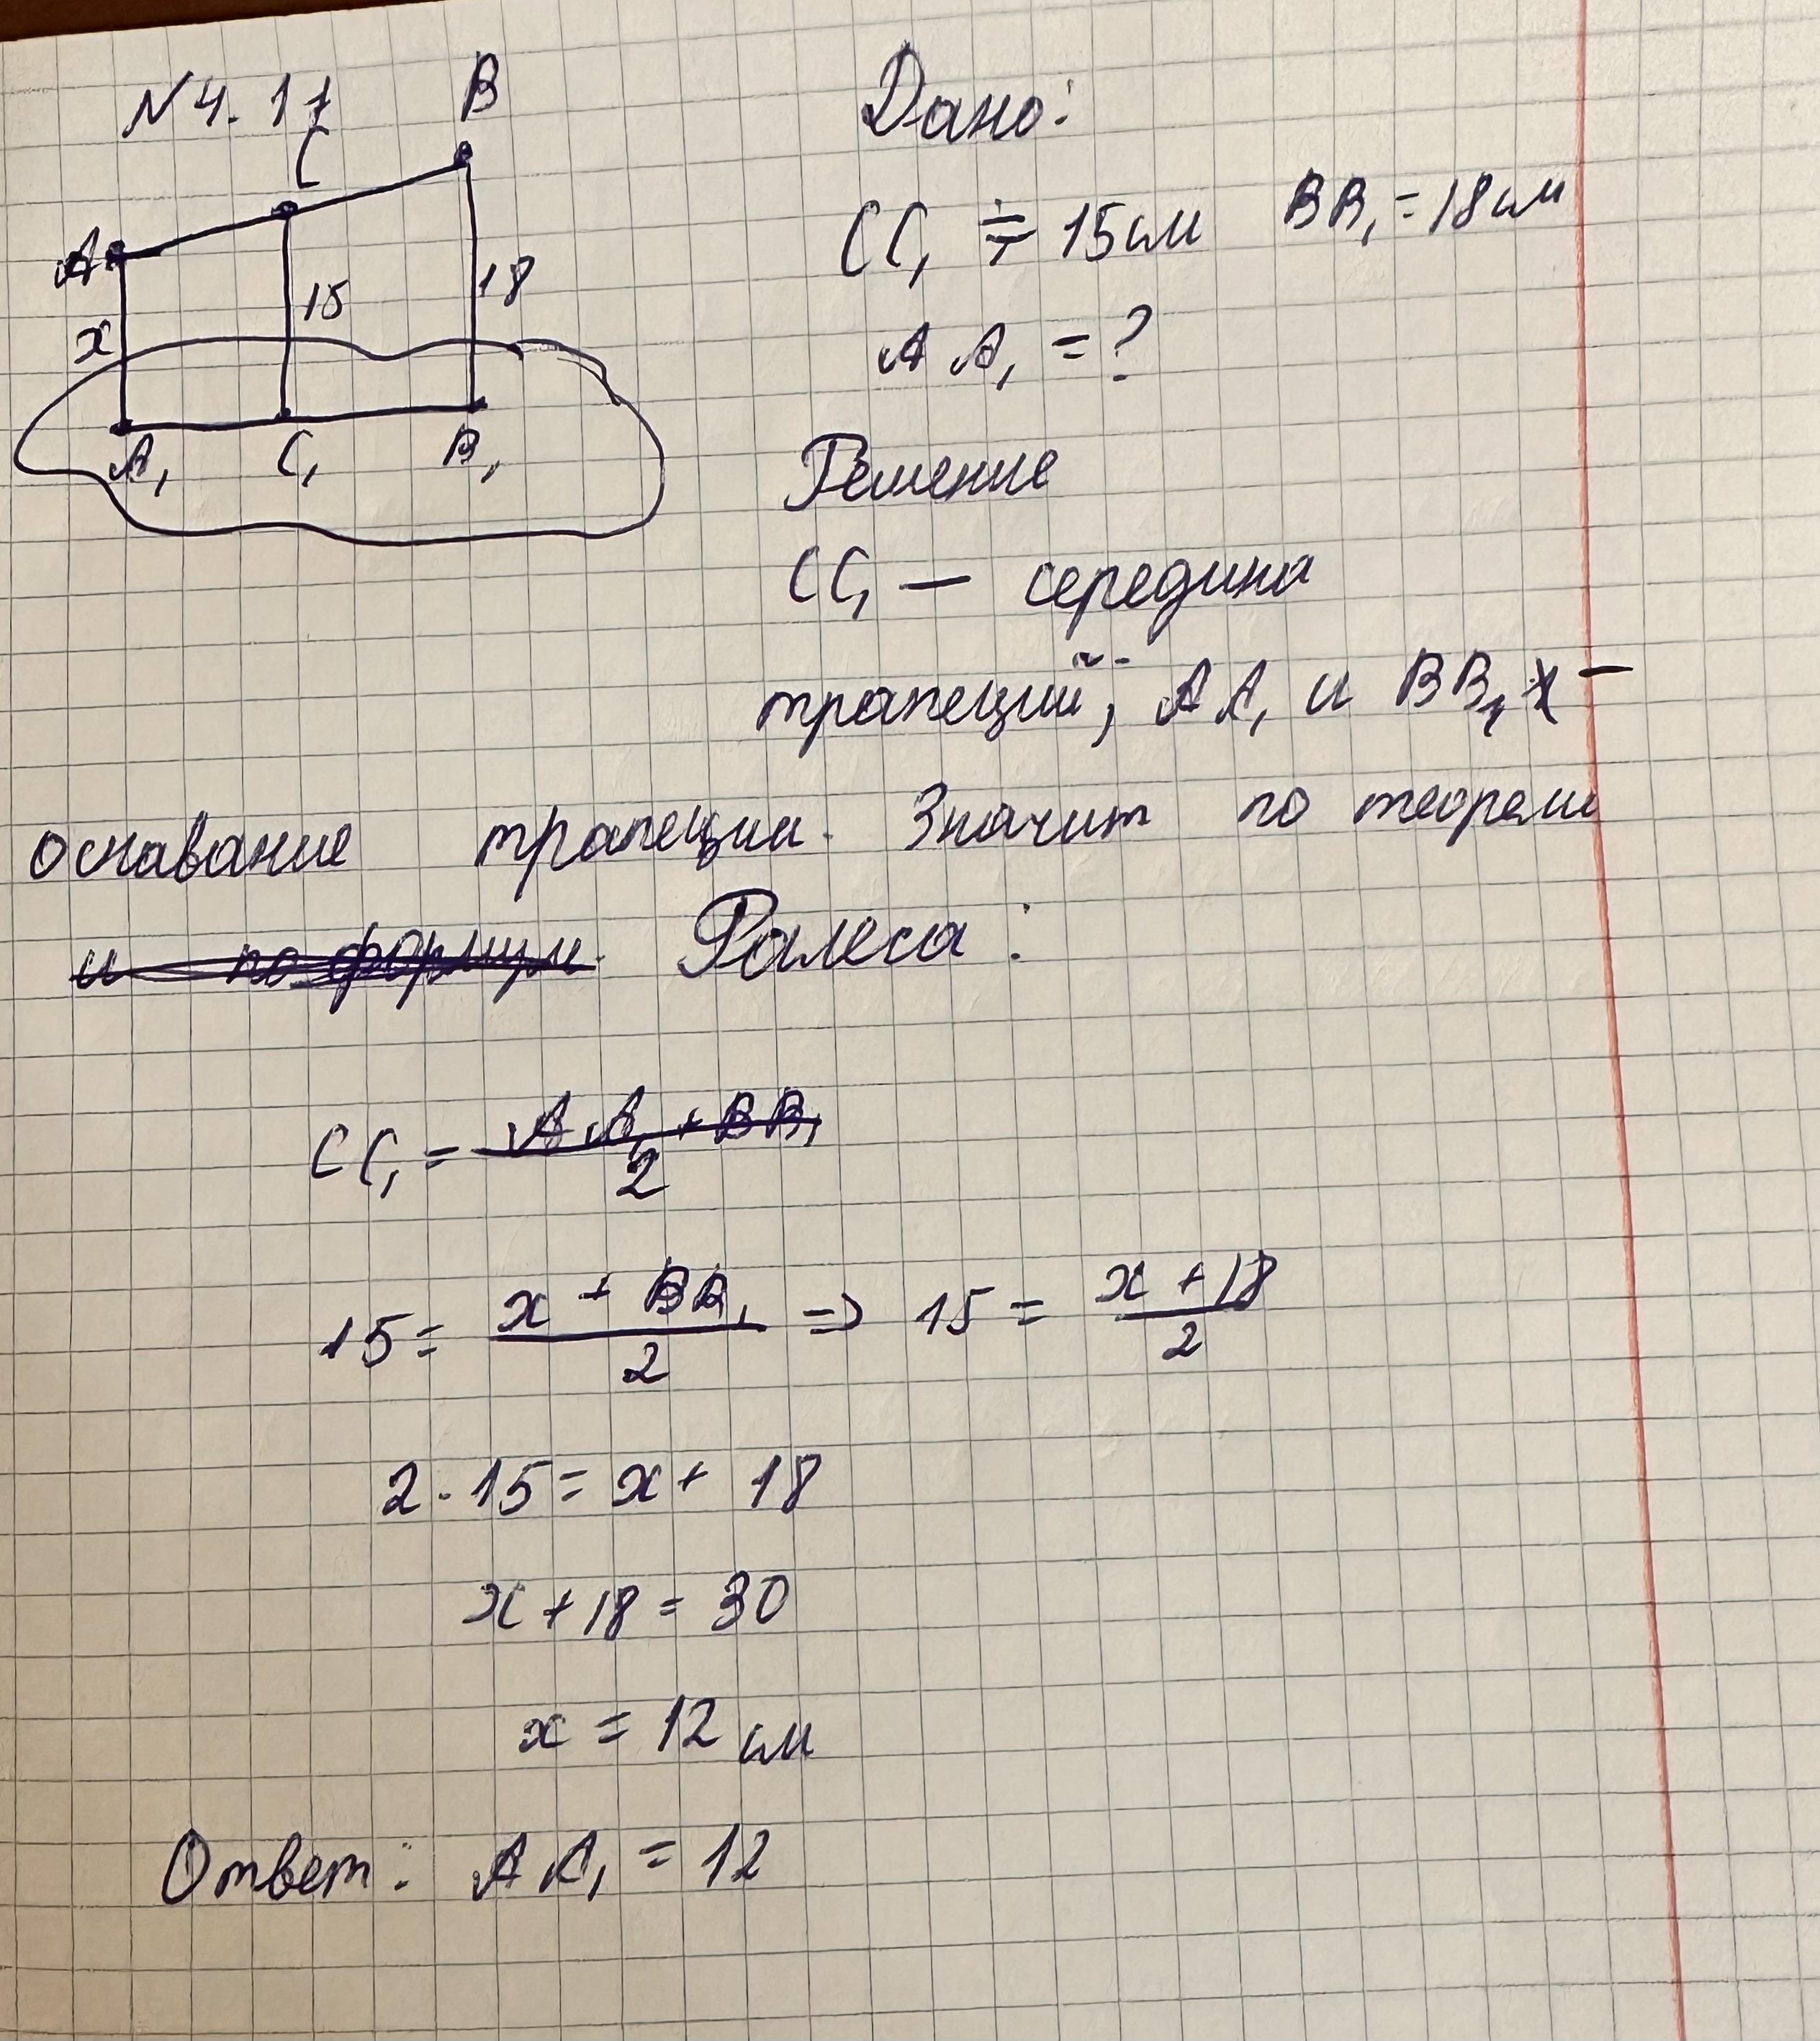 N4.17
B
C
A
x
15
18
A₁
C₁
B₁
Дано:
CC₁ = 15см BB₁ = 18см
AA₁ = ?
Решение
CC₁ — середина
трапеций, AA₁ и BB₁ —
оснавание трапеции. Значит по теореме
и по формуле Фалеса:
CC₁ = (AA₁ + BB₁)/2
15 = (x + BB₁)/2 => 15 = (x + 18)/2
2 · 15 = x + 18
x + 18 = 30
x = 12 см
Ответ: AA₁ = 12